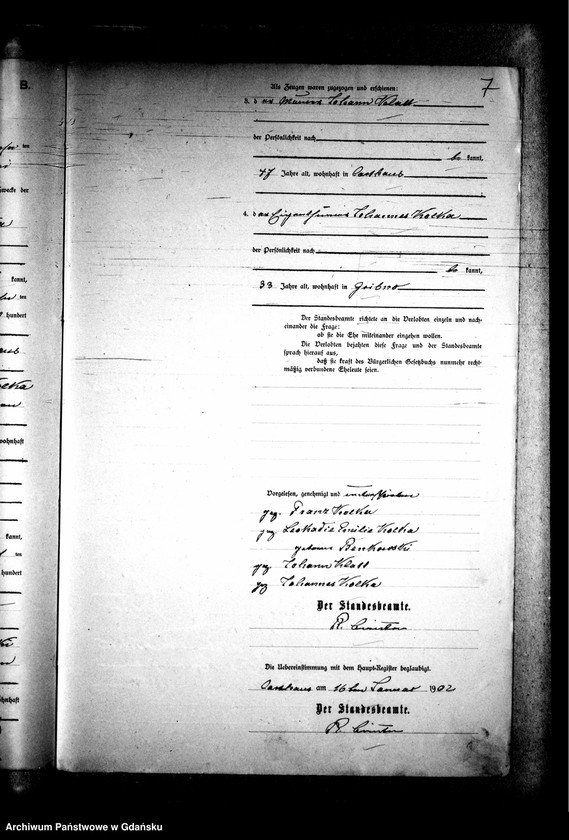 B.
7
Als Zeugen waren zugezogen und erschienen:
3. der Maurer Johann Klatt
der Persönlichkeit nach
be kannt,
47 Jahre alt, wohnhaft in Carthaus
4. der Eigenthümer Johannes Kolka
der Persönlichkeit nach
be kannt,
33 Jahre alt, wohnhaft in
Der Standesbeamte richtete an die Verlobten einzeln und nach-
einander die Frage:
ob sie die Ehe miteinander eingehen wollen.
Die Verlobten bejahten diese Frage und der Standesbeamte
sprach hierauf aus,
daß sie kraft des Bürgerlichen Gesetzbuchs nunmehr recht-
mäßig verbundene Eheleute seien.
Vorgelesen, genehmigt und unterschrieben
gez. Franz Kolka
gez. Leokadia Emilie Kolka
geborene Benkowski
gez. Johann Klatt
gez. Johannes Kolka
Der Standesbeamte.
R.
Die Uebereinstimmung mit dem Haupt-Register beglaubigt.
Carthaus am 16ten Januar 1902
Der Standesbeamte.
R.
ten
zwecke der
kannt,
ten
hundert
wohnhaft
kannt,
ten
hundert
wohnhaft
Archiwum Państwowe w Gdańsku